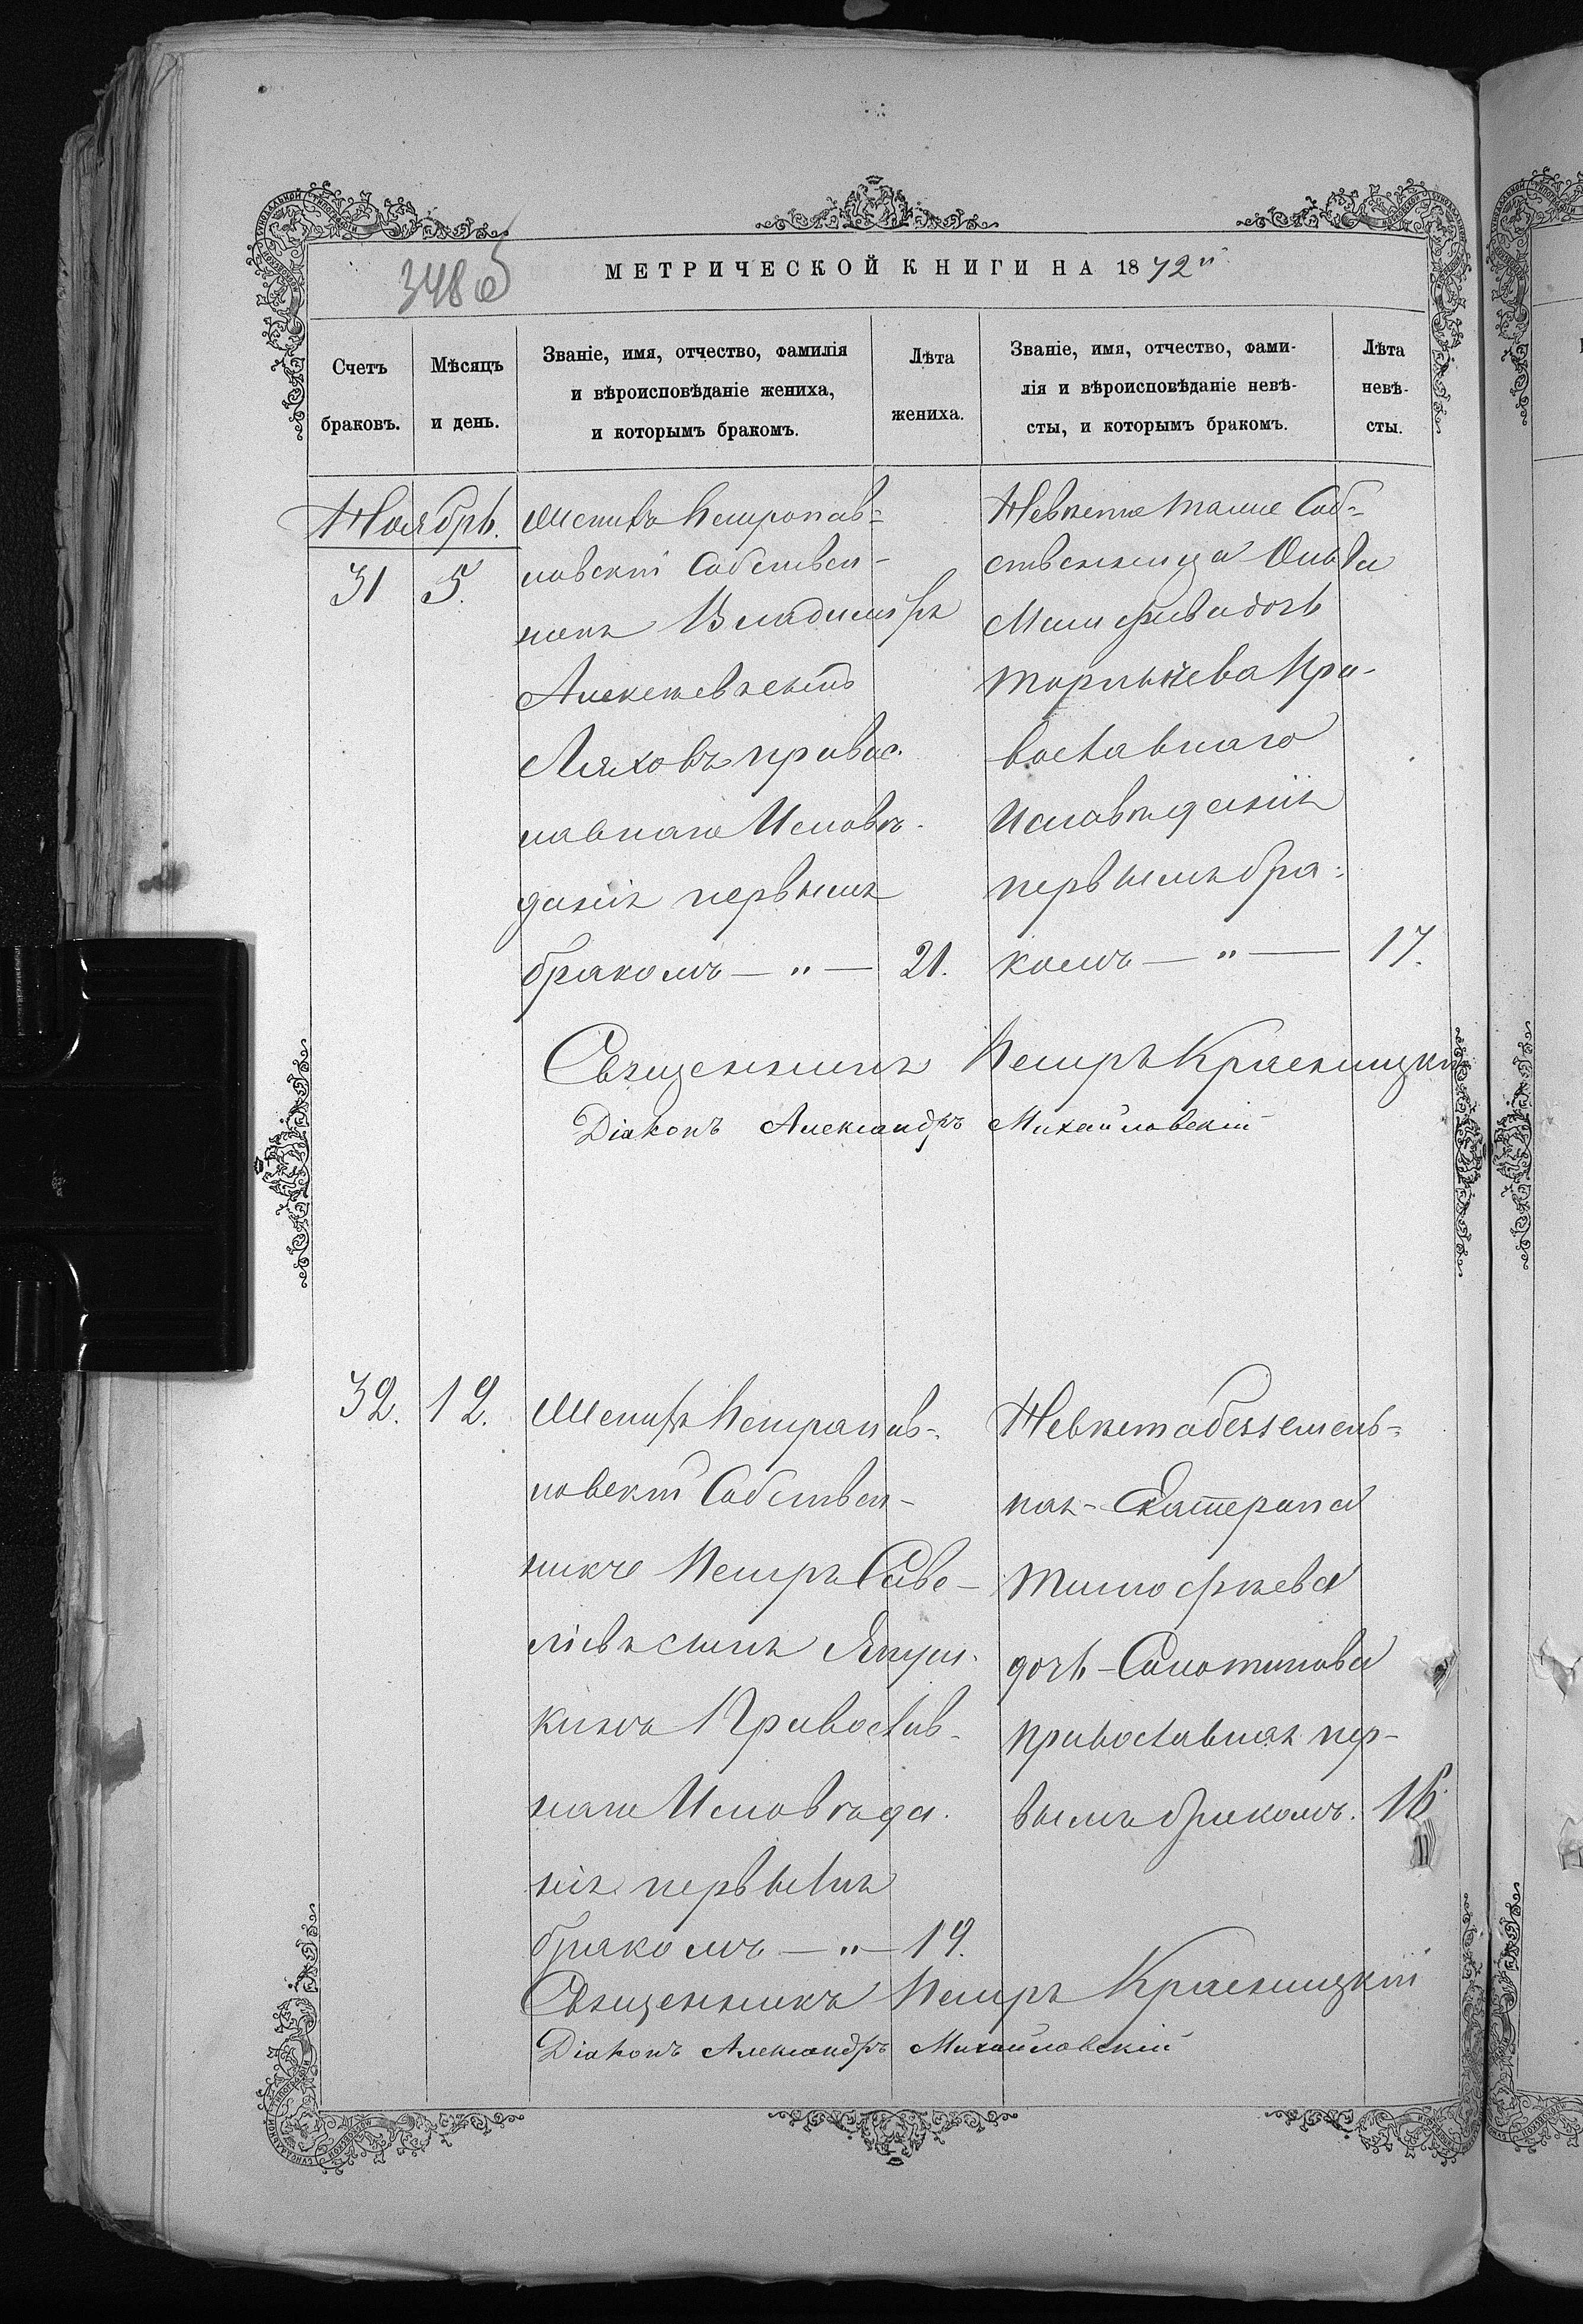 348 об
МЕТРИЧЕСКОЙ КНИГИ НА 1872й
Счетъ браковъ.
Мѣсяцъ и день.
Званіе, имя, отчество, фамилія
и вѣроисповѣданіе жениха,
и которымъ бракомъ.
Лѣта
жениха.
Званіе, имя, отчество, фами-
лія и вѣроисповѣданіе невѣ-
сты, и которымъ бракомъ.
Лѣта
невѣ-
сты.
Ноябрь.
31 5.
Женихъ Петропав=
ловскій Собствен-
никъ Владиміръ
Алексѣевъ сынъ
Ляховъ правос.
лавнаго Исповѣ.
данія первымъ
бракомъ — " — 21.
Невѣста таже Соб=
ственница
дочь
Пра-
вославнаго
Исповѣданія
первымъ бра:
комъ — " — 17.
Священникъ Петръ Красницкій
Діаконъ Александръ Михайловскій
32. 12.
Женихъ Петропав=
ловскій Собствен-
никъ Петръ Саве-
ліевъ сынъ
Православ-
наго Исповѣда.
нія первымъ
бракомъ — " — 19.
Невѣста безземель=
ная - Екатерина
Тимофѣева
дочь - Солотинова
православная пер-
вымъ бракомъ.
Священникъ Петръ Красницкій
Діаконъ Александръ Михайловскій